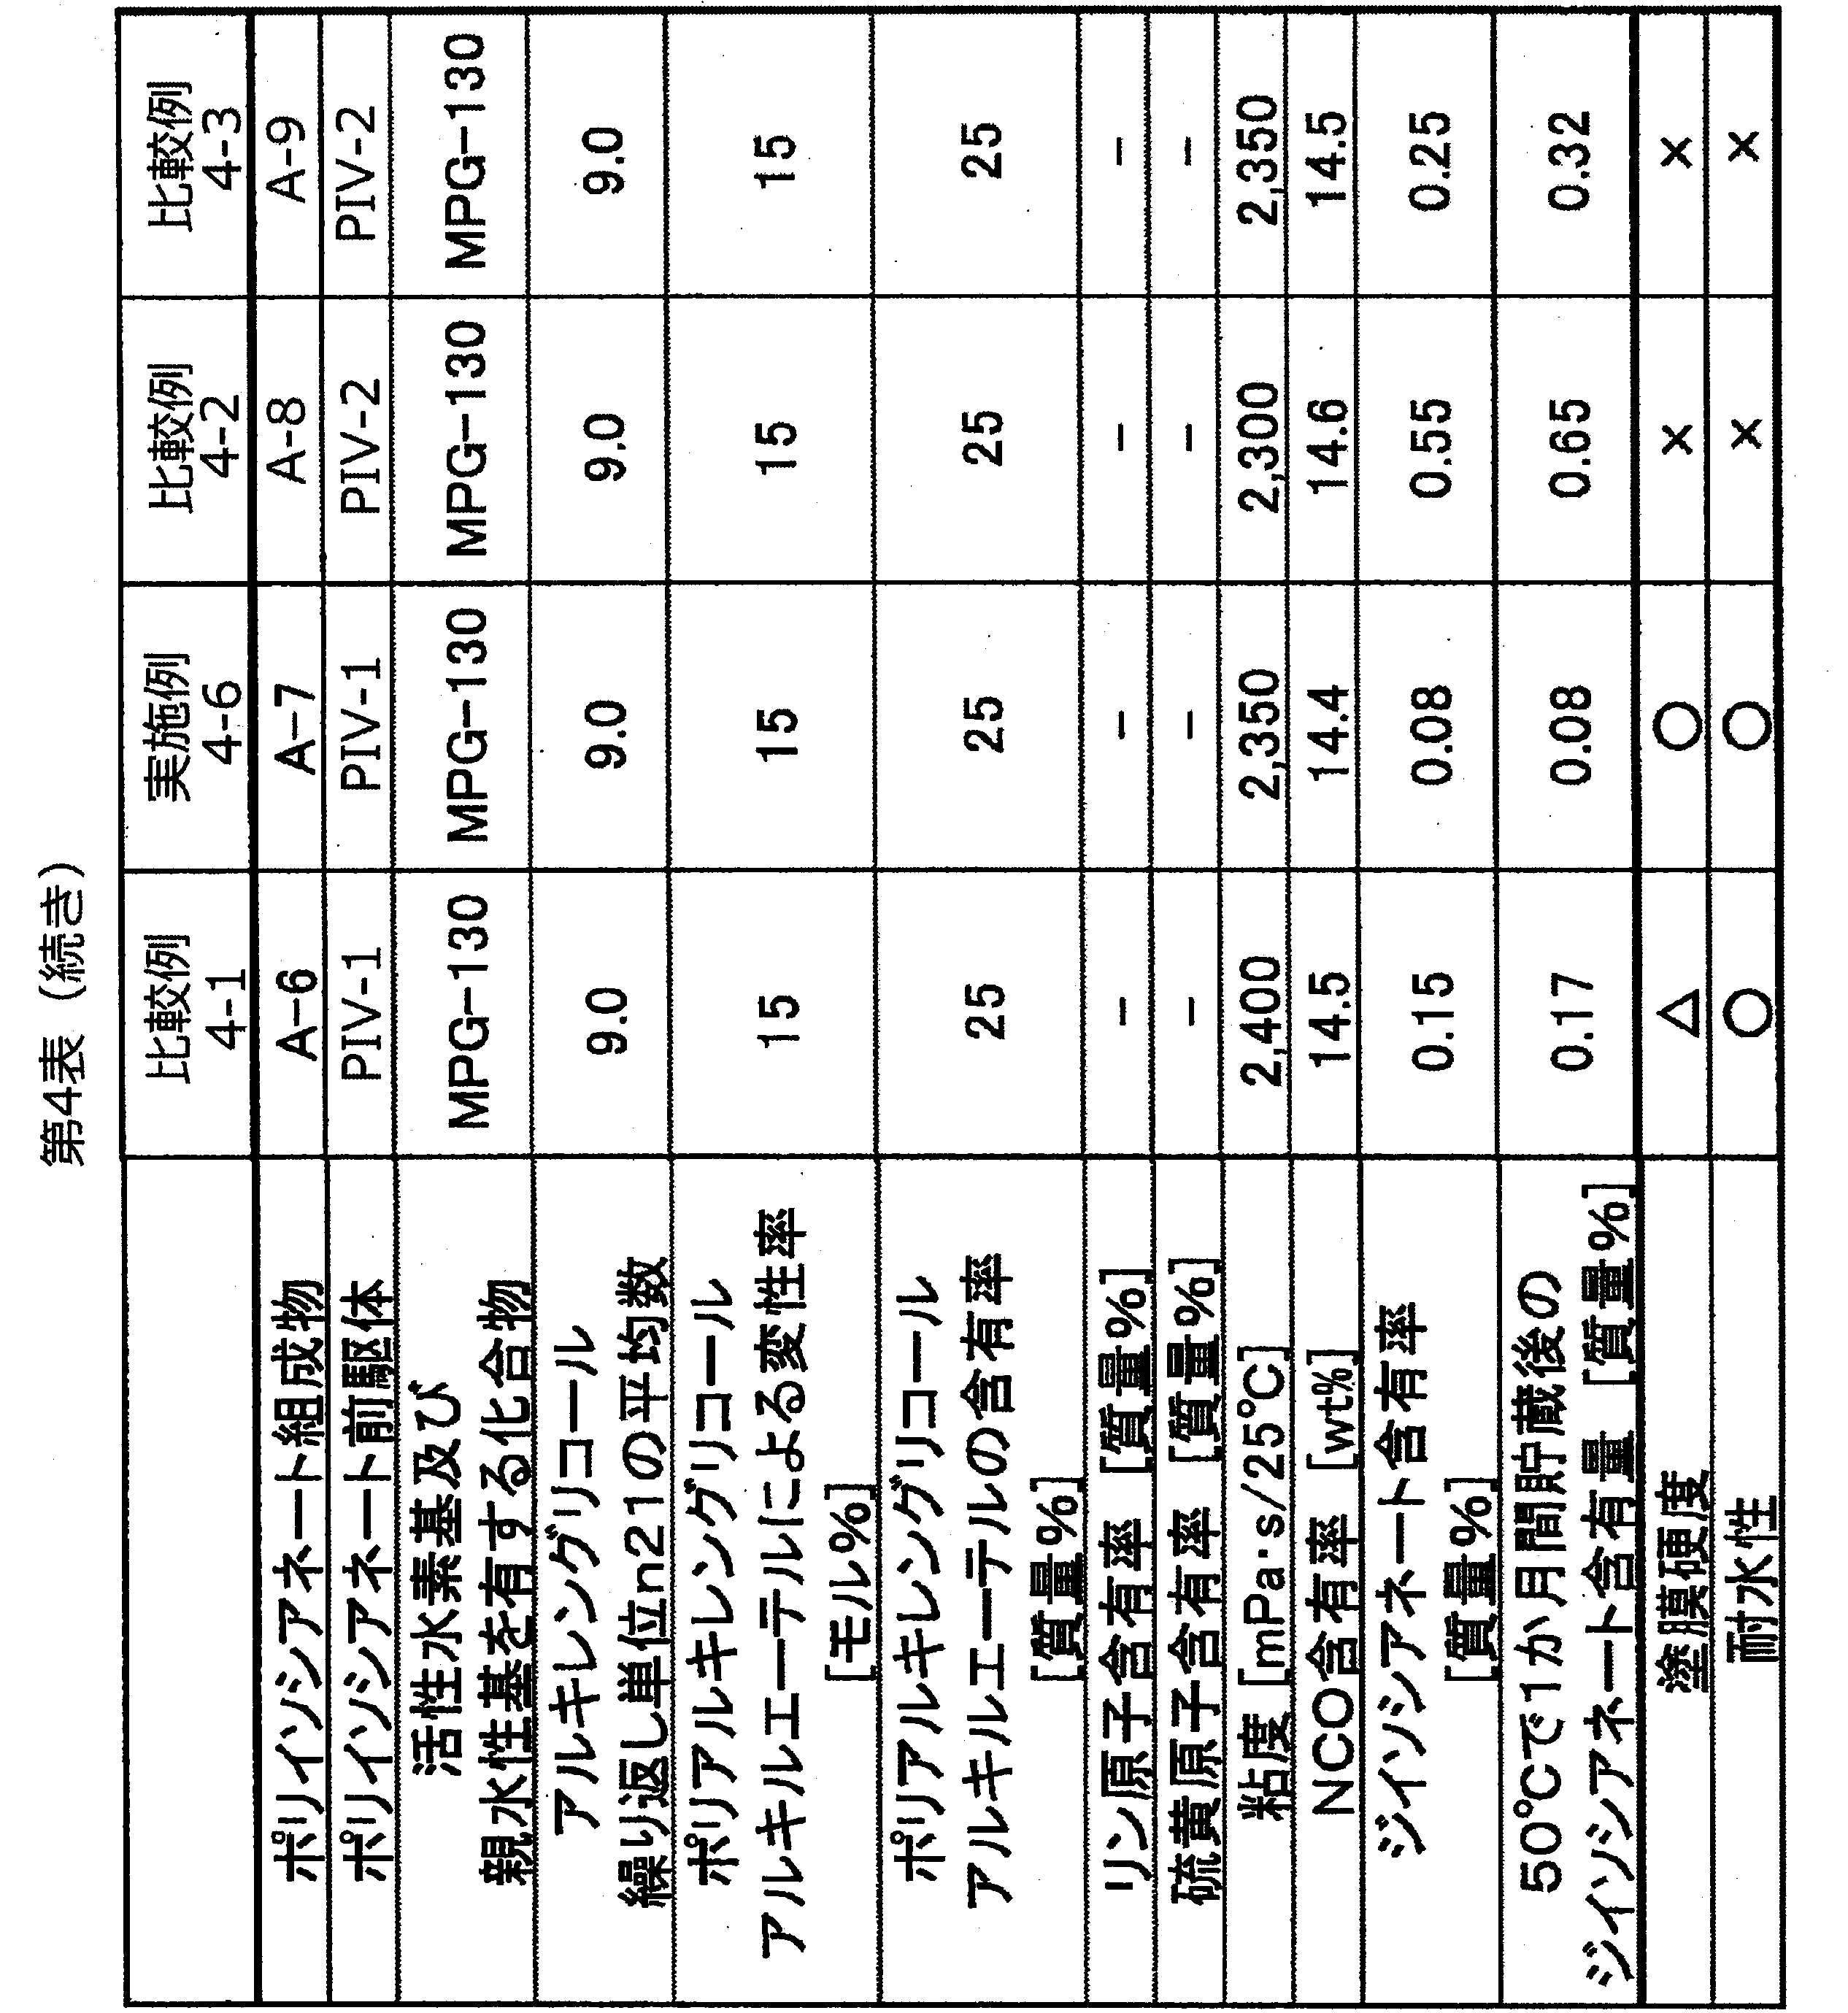 第4表（続き）
比較例 4-1 実施例 4-6 比較例 4-2 比較例 4-3
ポリイソシアネート組成物 A-6 A-7 A-8 A-9
ポリイソシアネート前駆体 PIV-1 PIV-1 PIV-2 PIV-2
活性水素基及び
親水性基を有する化合物 MPG-130 MPG-130 MPG-130 MPG-130
アルキレングリコール
繰り返し単位n21の平均数 9.0 9.0 9.0 9.0
ポリアルキレングリコール
アルキルエーテルによる変性率
[モル%] 15 15 15 15
ポリアルキレングリコール
アルキルエーテルの含有率
[質量%] 25 25 25 25
リン原子含有率 [質量%] - - - -
硫黄原子含有率 [質量%] - - - -
粘度[mPa·s/25℃] 2,400 2,350 2,300 2,350
NCO含有率 [wt%] 14.5 14.4 14.6 14.5
ジイソシアネート含有率
[質量%] 0.15 0.08 0.55 0.25
50℃で1か月間貯蔵後の
ジイソシアネート含有量 [質量%] 0.17 0.08 0.65 0.32
塗膜硬度 △ ○ × ×
耐水性 ○ ○ × ×